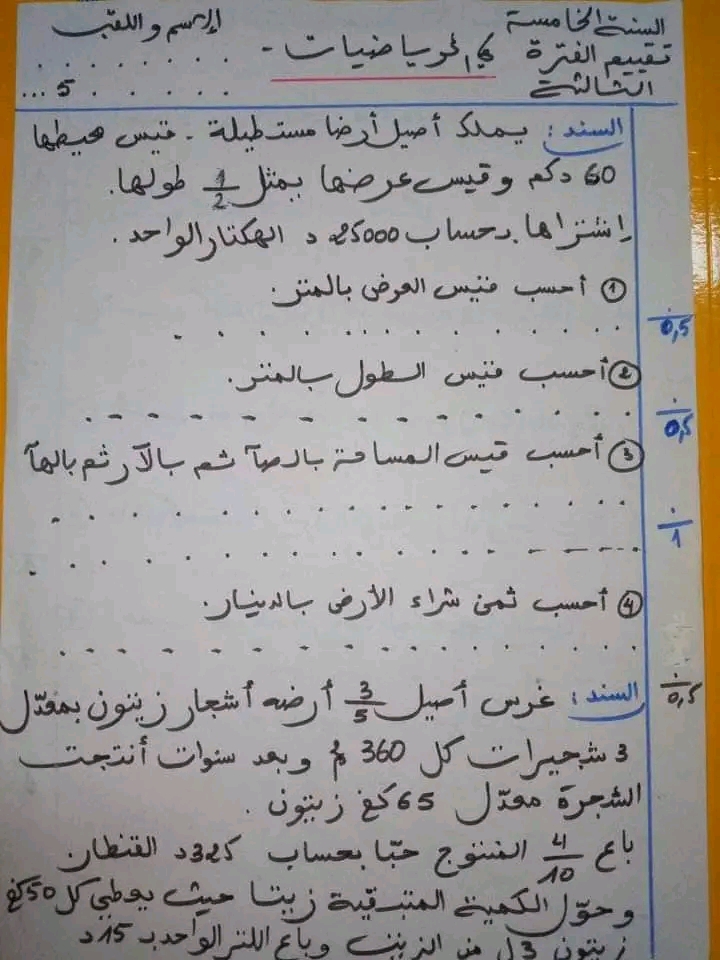 السنة الخامسة
تقييم الفترة
الثالثة
في الرياضيات -
الإسم و اللقب
. . . . . . . .
. . . . . 5 ...
السند : يملك أصيل أرضا مستطيلة . قيس محيطها
60 دكم و قيس عرضها يمثل 1/2 طولها.
إشتراها بحساب 25000 د الهكتار الواحد .
① أحسب قيس العرض بالمتر.
./0,5
② أحسب قيس الطول بالمتر.
./0,5
③ أحسب قيس المساحة بالصآ ثم بالآر ثم بالهآ
./1
④ أحسب ثمن شراء الأرض بالدينار.
./0,5
السند : غرس أصيل 3/5 أرضه أشجار زيتون بمعدّل
3 شجيرات كل 360 م² و بعد سنوات أنتجت
الشجرة معدّل 65 كغ زيتون .
باع 4/10 المنتوج حبّا بحساب 325 د القنطار
و حوّل الكمية المتبقية زيتا حيث يعطي كل 50 كغ
زيتون 3 ل من الزيت و باع اللتر الواحد بـ 15 د